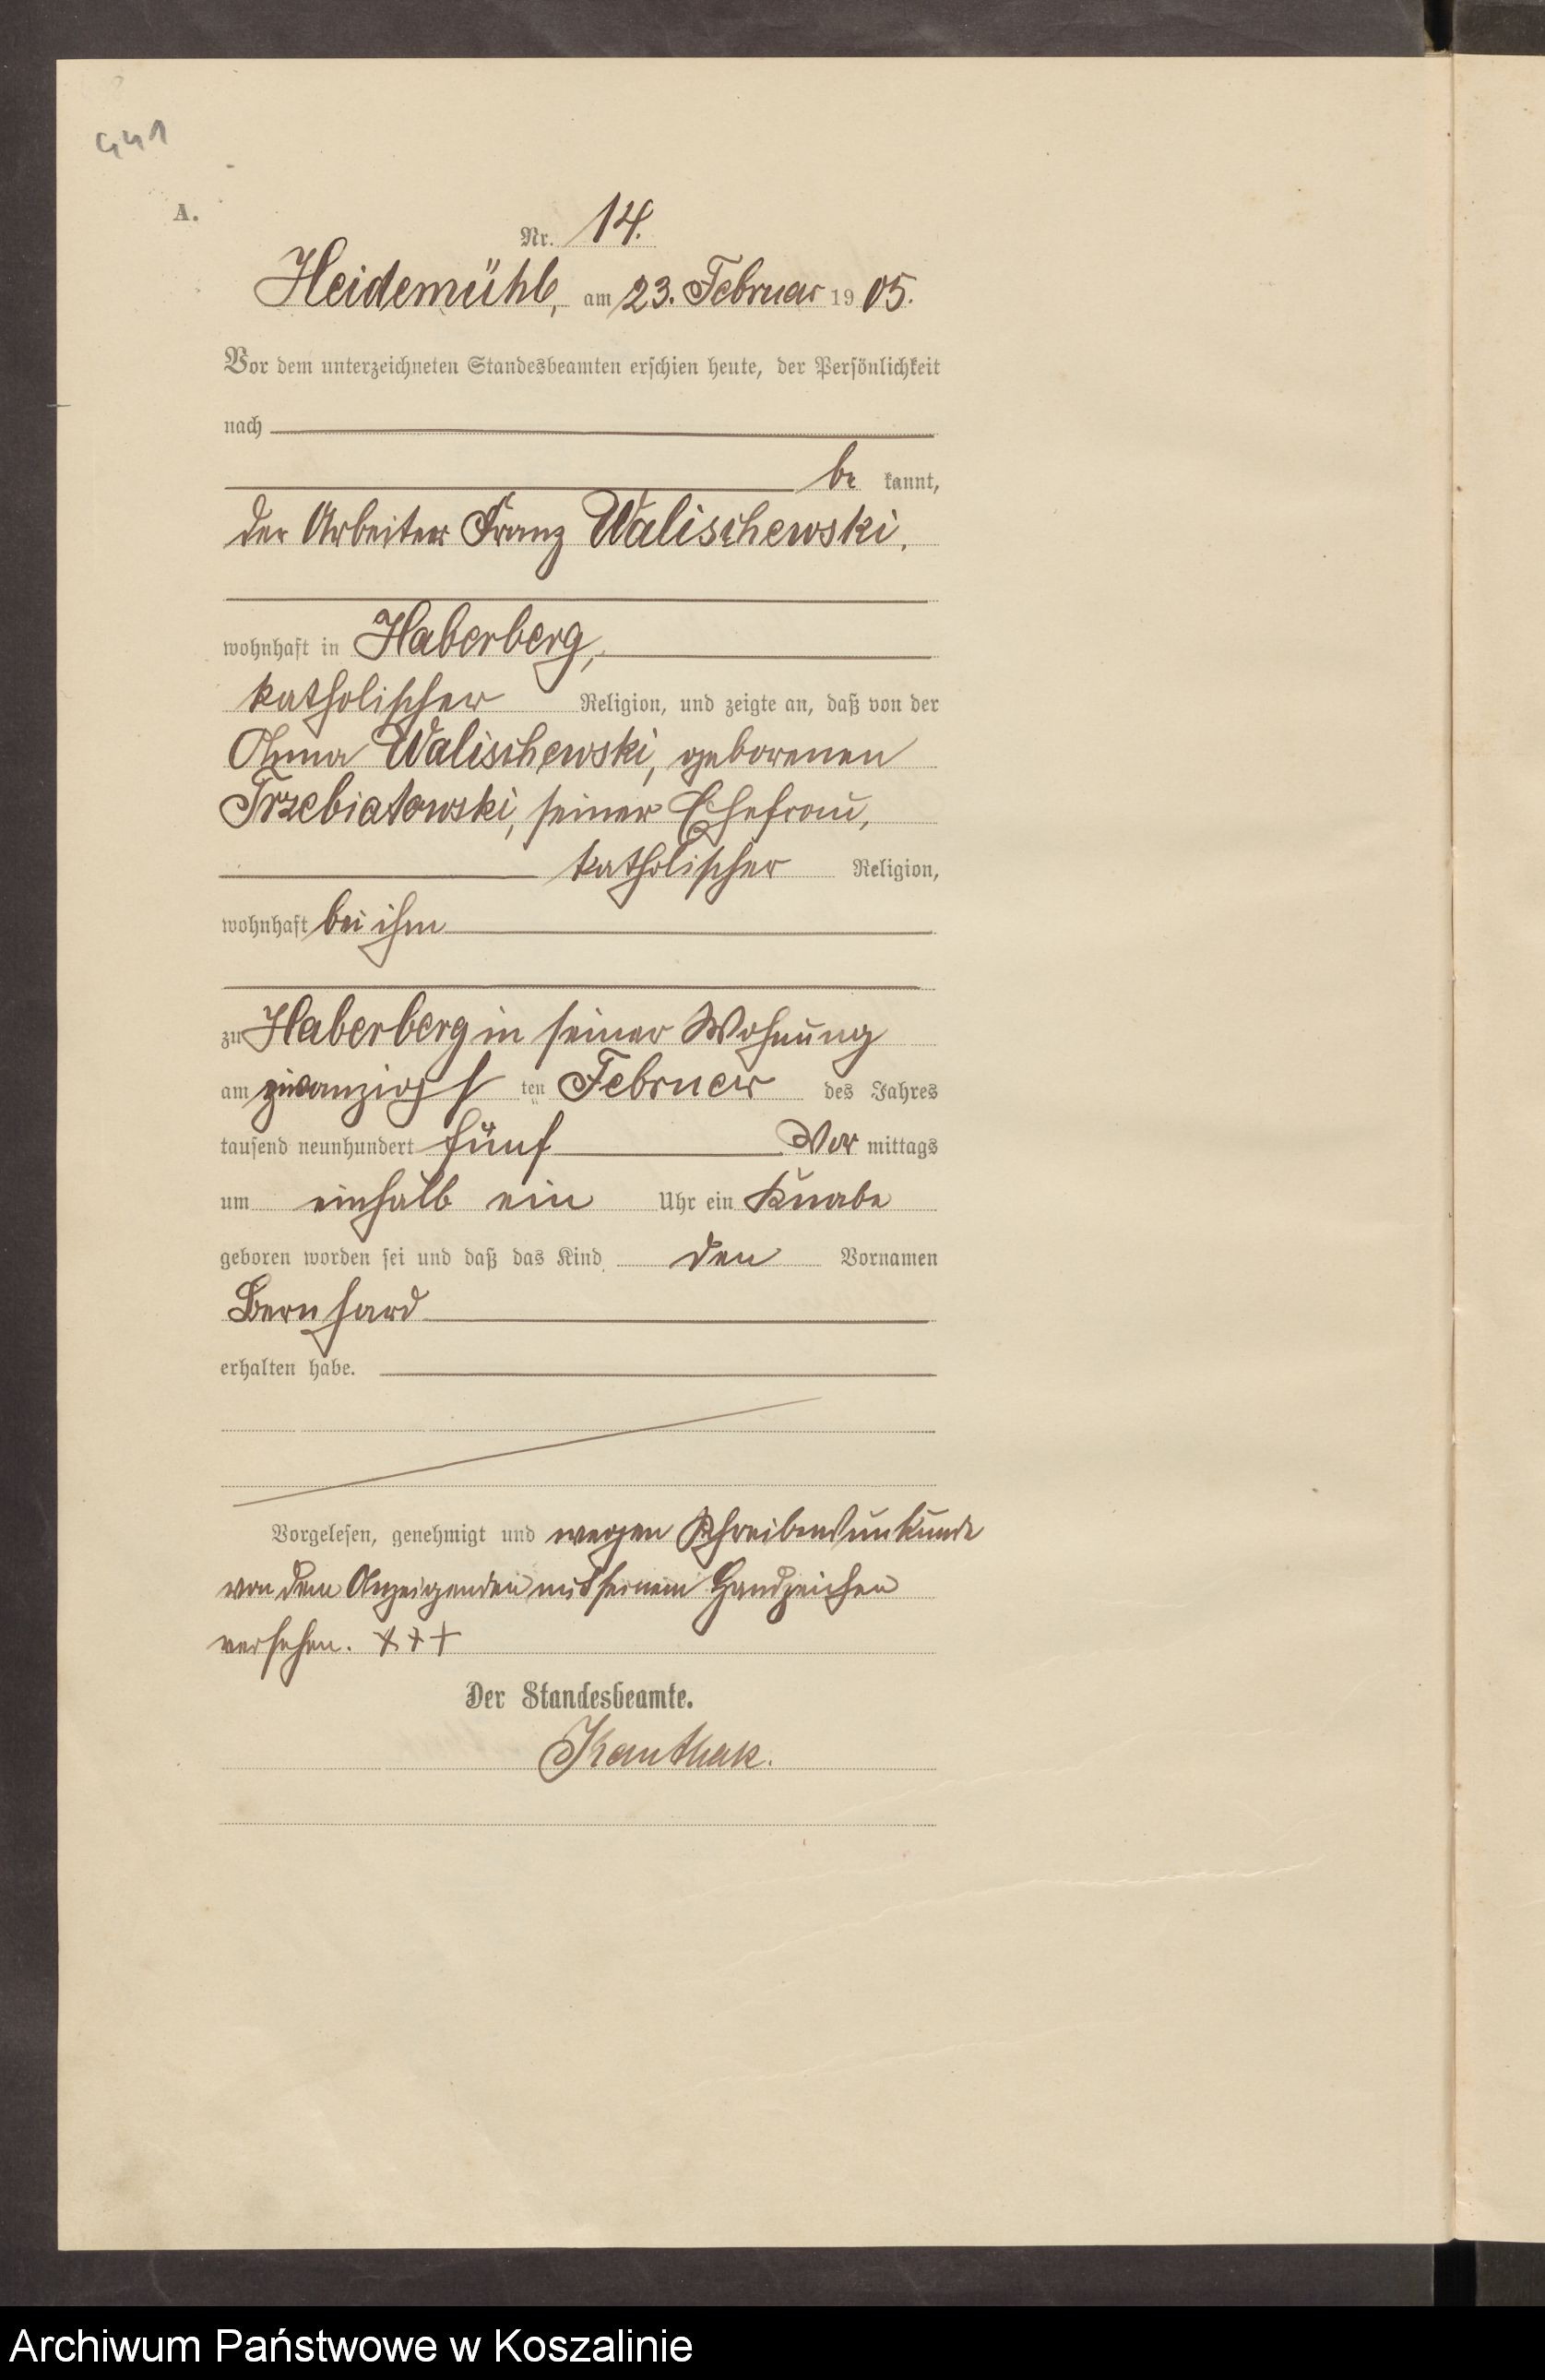 441
A.
Nr. 14.
Heidemühl, am 23. Februar 1905.
Vor dem unterzeichneten Standesbeamten erschien heute, der Persönlichkeit
nach
be kannt,
der Arbeiter Franz Walischewski,
wohnhaft in Haberberg,
katholischer Religion, und zeigte an, daß von der
Anna Walischewski, geborenen
Trzebiatowski, seiner Ehefrau,
katholischer Religion,
wohnhaft bei ihm
zu Haberberg in seiner Wohnung
am zwanzigs ten Februar des Jahres
tausend neunhundert fünf Vor mittags
um einhalb ein Uhr ein Knabe
geboren worden sei und daß das Kind den Vornamen
Bernhard
erhalten habe.
Vorgelesen, genehmigt und wegen Schreibensunkunde
von dem Anzeigenden mit seinem Handzeichen
versehen. + + +
Der Standesbeamte.
Kanthak.
Archiwum Państwowe w Koszalinie